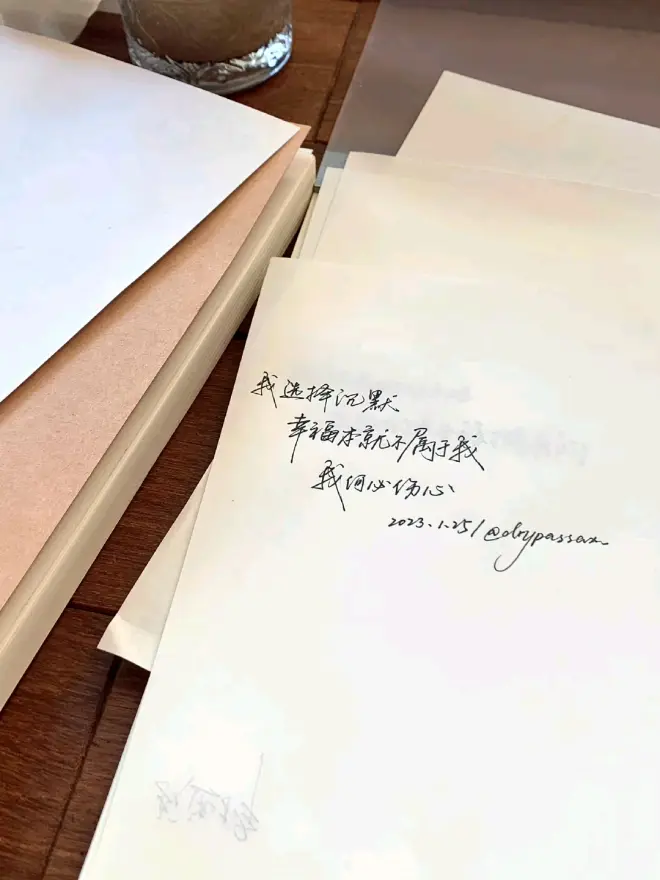 我选择沉默
幸福本就不属于我
我何必伤心
2023.1.25/